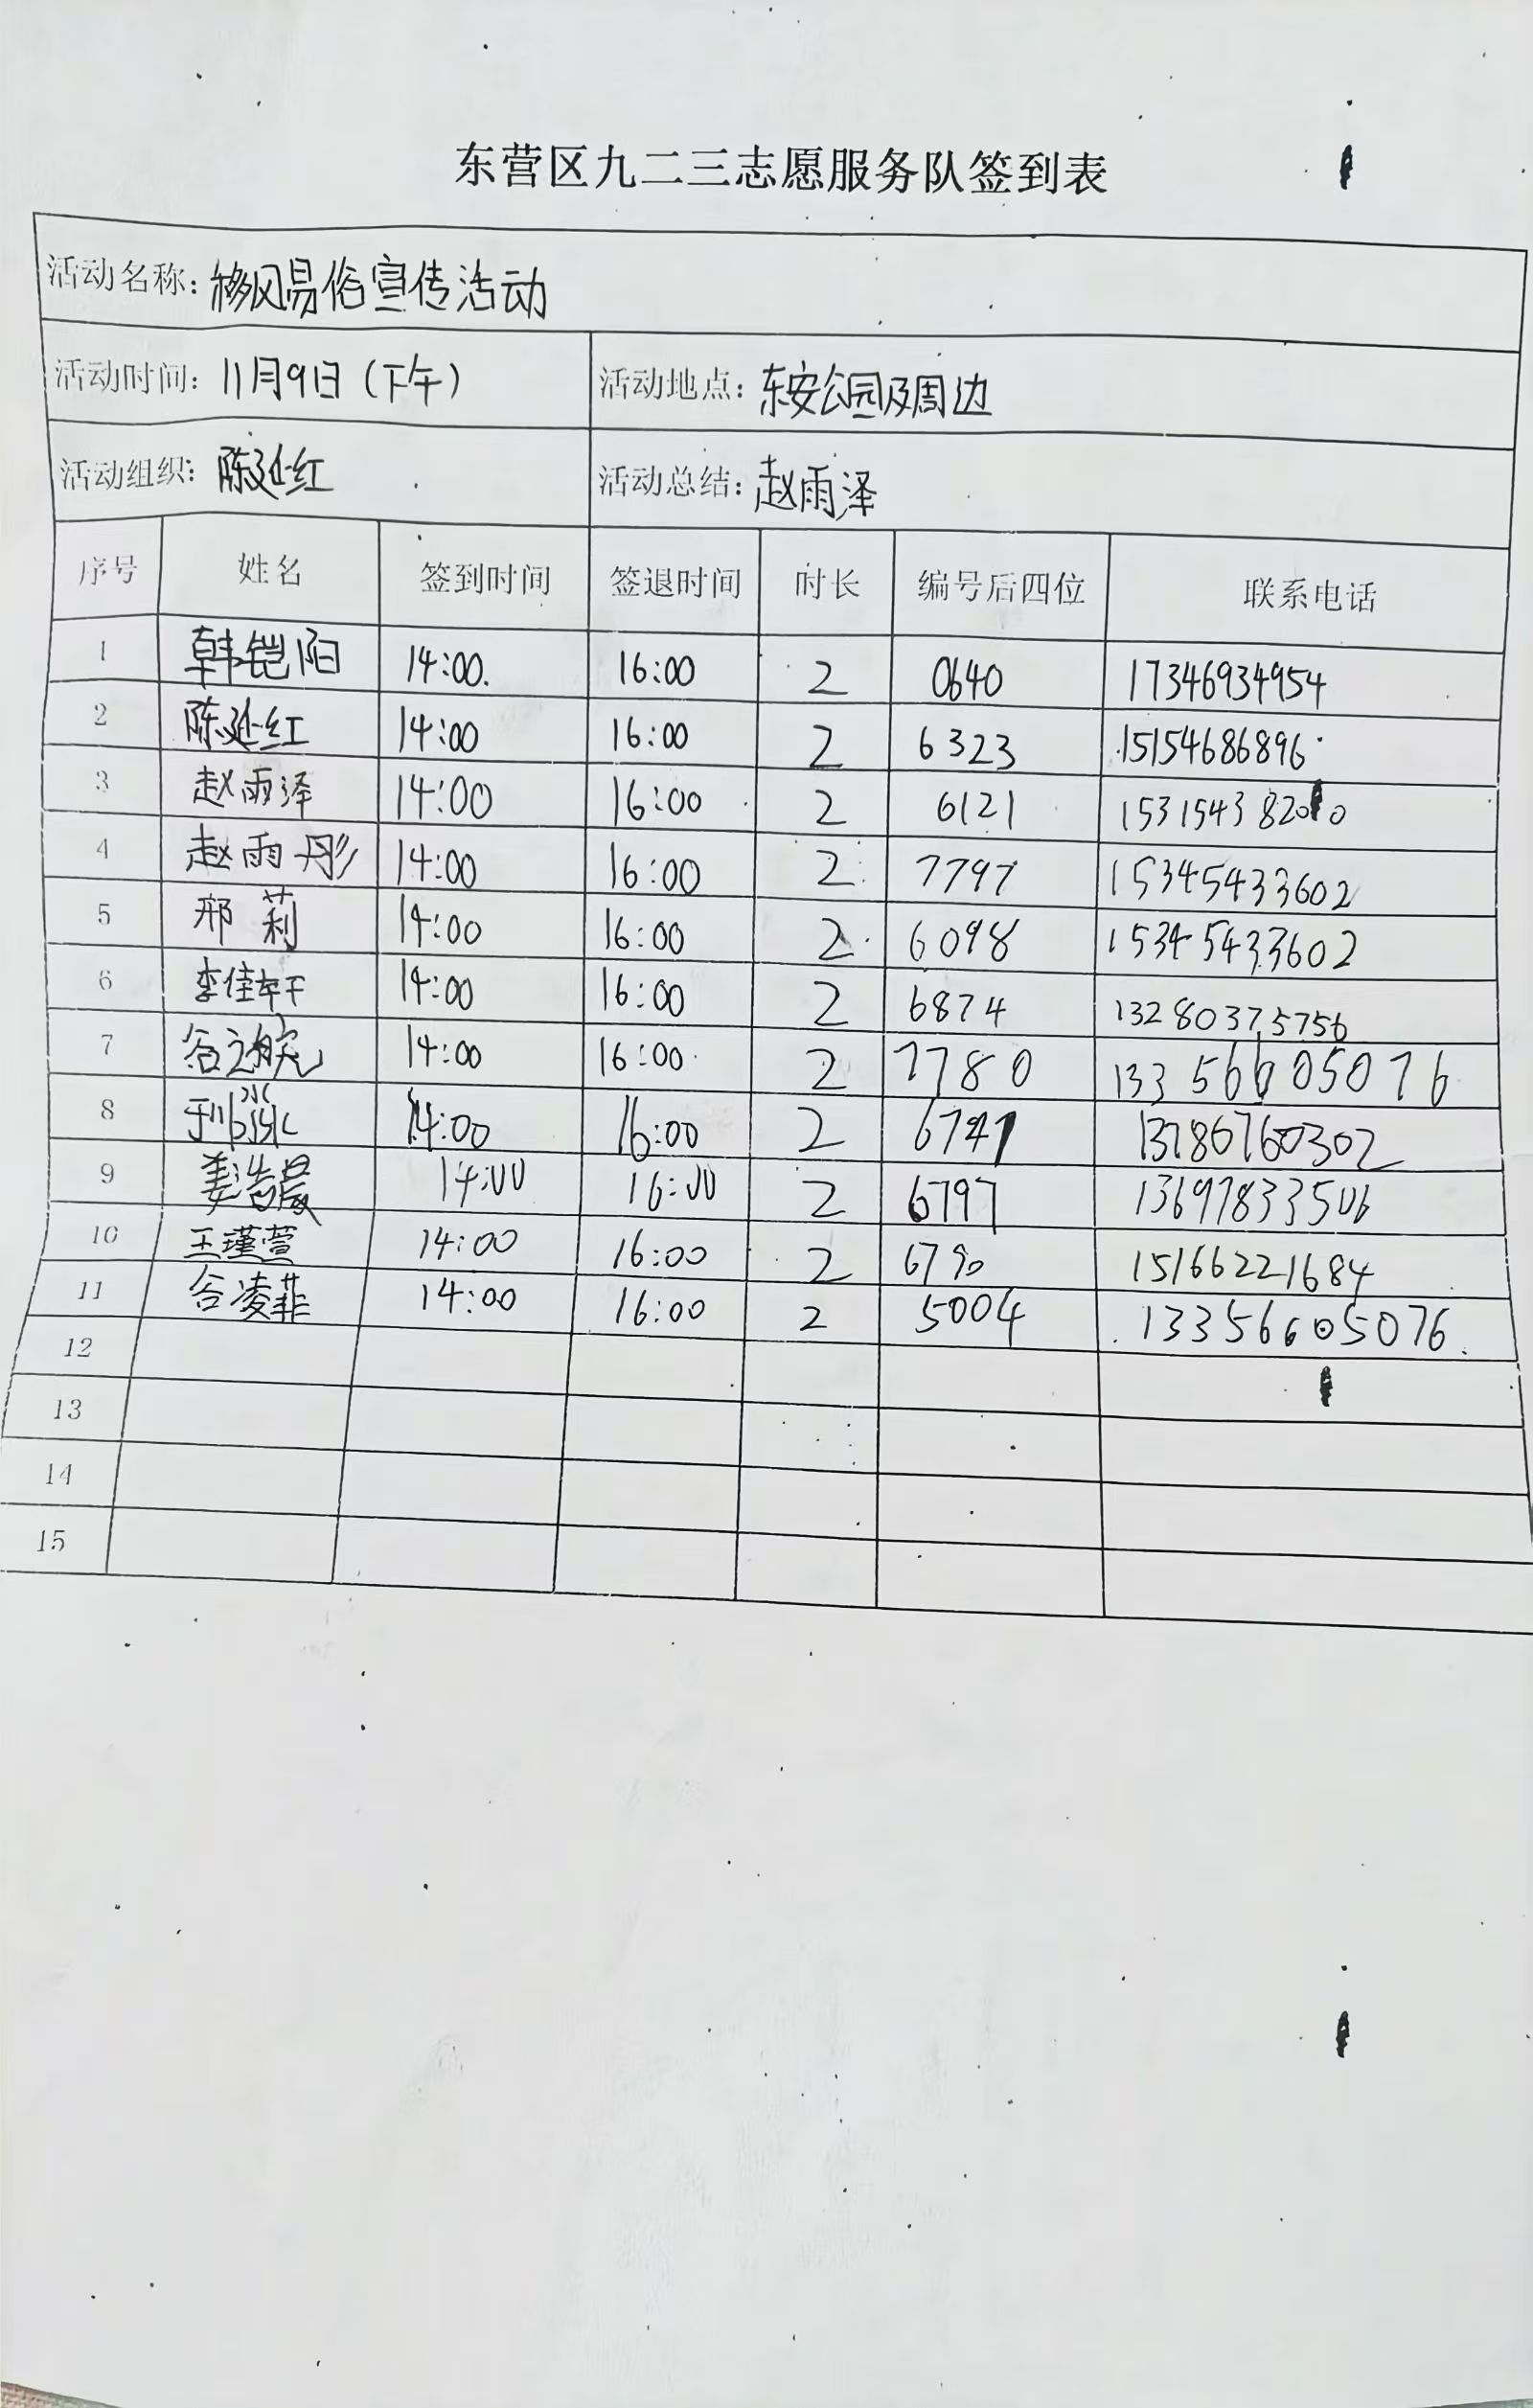 东营区九二三志愿服务队签到表
活动名称: 移风易俗宣传活动
活动时间: 11月9日(下午) 活动地点: 东安公园及周边
活动组织: 陈延红 活动总结: 赵雨泽
序号 姓名 签到时间 签退时间 时长 编号后四位 联系电话
1 韩铠阳 14:00 16:00 2 0640 17346934954
2 陈延红 14:00 16:00 2 6323 15154686896
3 赵雨泽 14:00 16:00 2 6121
4 赵雨彤 14:00 16:00 2 7797 15345433602
5 邢莉 14:00 16:00 2 6098 15345433602
6 李佳轩 14:00 16:00 2 6874 13280375756
7 14:00 16:00 2 7780 13356605076
8 14:00 16:00 2
9 姜浩晨 14:00 16:00 2 6797 13697833506
10 王瑾萱 14:00 16:00 2 6790 15166221684
11 谷凌菲 14:00 16:00 2 5004 13356605076
12
13
14
15